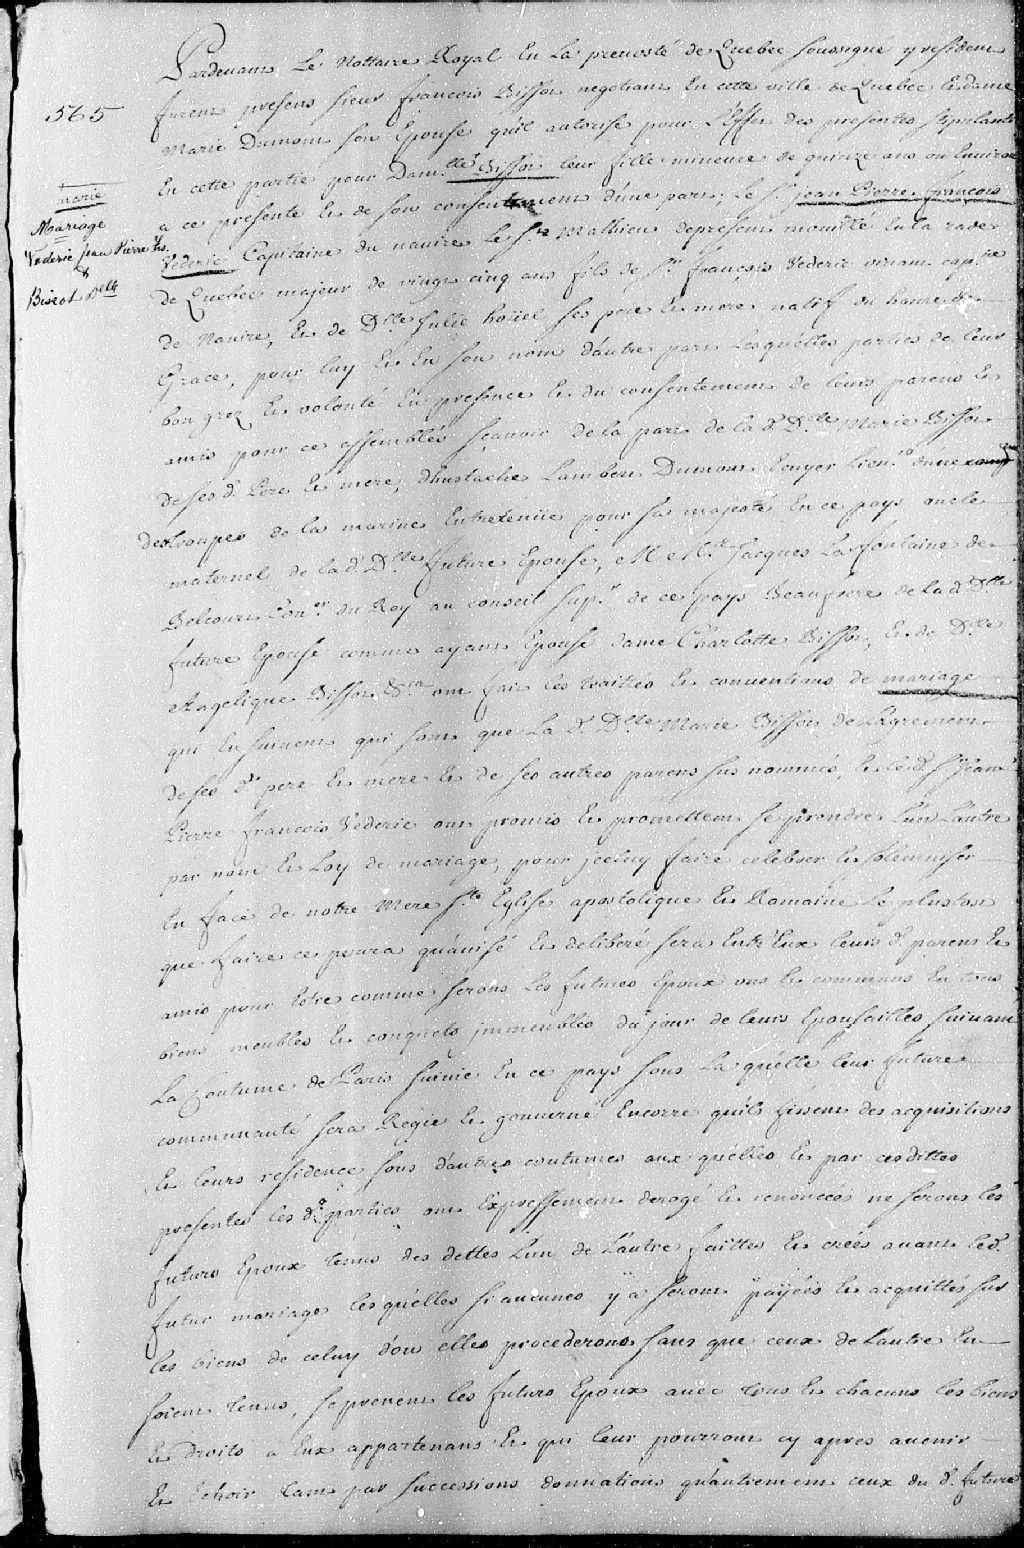 Pardevant Le Nottaire Royal En La prevosté de Quebec soussigné y resident
furent presens sieur francois Bissot negotiant En cette ville de Quebec et dame
565
Marie Dumont son Epouse qu'il autorise pour L'Effet des presentes stipulants
En cette partie pour Dam.lle Bissot leur fille mineure de quinze ans ou Environ
marie
a ce presente et de son consentement d'une part; et le S.r jean Pierre françois
Mariage
Vederic Jean Pierre frs.
&
Bissot Dlle
Vederic Capitaine du navire le S.t Mathieu depresent mouillé En la rade
de Quebec majeur de vingt cinq ans fils de S.r francois Vederic vivant cap.ne
de Navire, et de D.lle Julie hoüel ses pere et mere natif du havre de
Grace, pour luy et En son nom d'autre part Lesquelles parties de leur
bon grez et volonté En presence et du consentement de leurs parens et
amis pour ce assemblés sçavoir de la part de la d.e D.lle Marie Bissot
de ses d. Pere et mere, d'Eustache Lambert Dumont Ecuyer Lieu.t d'une comp
des troupes de la marine Entretenüe pour sa majesté En ce pays oncle
maternel de la d.e D.lle future Epouse, M.e Jacques Lafontaine de
Belcourt Con.er du Roy au conseil Sup.r de ce pays Beaufrere de la d.e D.lle
future Epouse comme ayant Epousé dame Charlotte Bissot, et de D.lle
Angelique Bissot &.ca ont fait les traittés et conventions de mariage
qui Ensuivent qui sont que La d.e D.lle Marie Bissot de L'agrement
de ses d. pere et mere et de ses autres parens sus nommés, et le d. S.r Jean
Pierre francois Vederic ont promis et promettent se prendre L'un L'autre
par nom et Loy de mariage, pour jceluy faire celebrer et solemniser
En face de notre Mere S.te Eglise apostolique et Romaine Le plustost
que faire ce poura qu'avisé et deliberé sera Entr'Eux leurs d. parens et
amis pour Estre comme seront Les futurs Epoux uns et communs En tous
biens meubles et conquets jmmeubles du jour de leurs Epousailles suivant
La Coutume de Paris suivie En ce pays sous La quelle leur future
communauté sera Regie et gouverné Encorre qu'ils fissent des acquisitions
et leurs residence sous d'autres coutumes aux quelles et par ces dittes
presentes les d. parties ont Expressement derogé et renoncées ne seront les
futurs Epoux tenus des dettes L'un de L'autre faittes et créés avant led.
futur mariage lesquelles si aucunes y a seront payées et acquittés sur
les biens de celuy d'ou elles procederont sans que ceux de L'autre En
soient tenus, se prenent les futurs Epoux avec tous et chacuns les biens
et droits a Eux appartenans et qui leur pourront cy apres avenir
et Echoir tant par successions donnations qu'autrement ceux du d. future